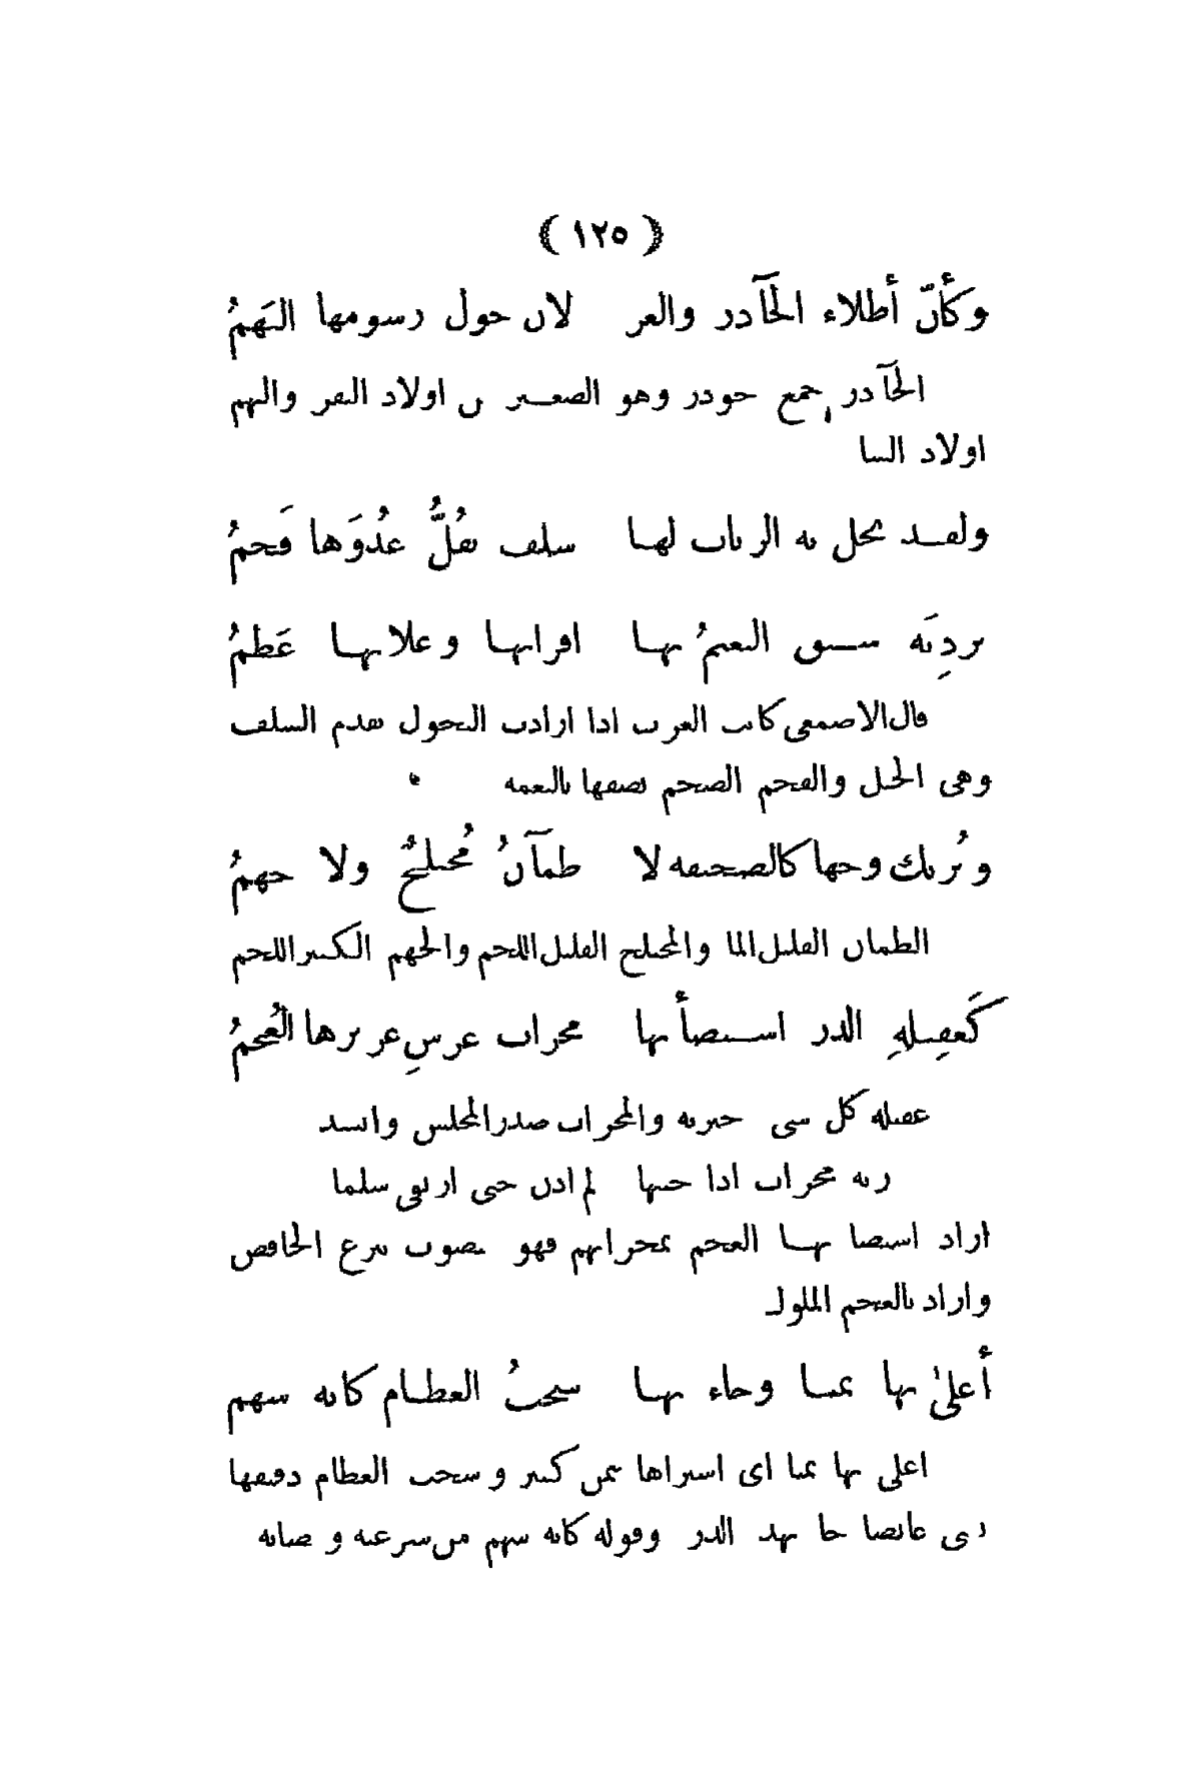 ﴿ ١٢٥ ﴾
وكأنّ أطلاء الجآذر والغز لان حول رسومها البَهمُ
الجآذر جمع جوذر وهو الصغير من اولاد البقر والبهم
اولاد الشا
ولقد تحل به الرباب لها سلف يفُلُّ عدُوَها فَخمُ
برديَّه سبق النعيمُ بها اقرانها وغلا بها عَظمُ
قال الاصمعي كانت العرب اذا ارادت التحول تقدم السلف
وهي الخيل والفخم الضخم تصفها بالنعمه
وتُريك وجها كالصحيفه لا ظمآنُ مُختلجٌ ولا جهمُ
الظمان القليل الما والمختلج القليل اللحم والجهم الكثير اللحم
كَعقيلةِ الدر استضأ بها محراب عرشِ عزيزها العُجمُ
عقيله كل شي خيرته والمحراب صدر المجلس وانشد
ربه محراب اذا جيتها لم ادن حتى ارتقي سلما
اراد استضا بها العجم بمحرابهم فهو منصوب بنزع الخافض
واراد بالعجم الملوك
أعلىٰ بها ثمنا وجاء بها شختُ العظام كانه سهم
اغلى بها ثمنا اى اشتراها بثمن كثير وشخت العظام دقيقها
يعني غائصا جا بهذ الدر وقوله كانه سهم من سرعته و صابه